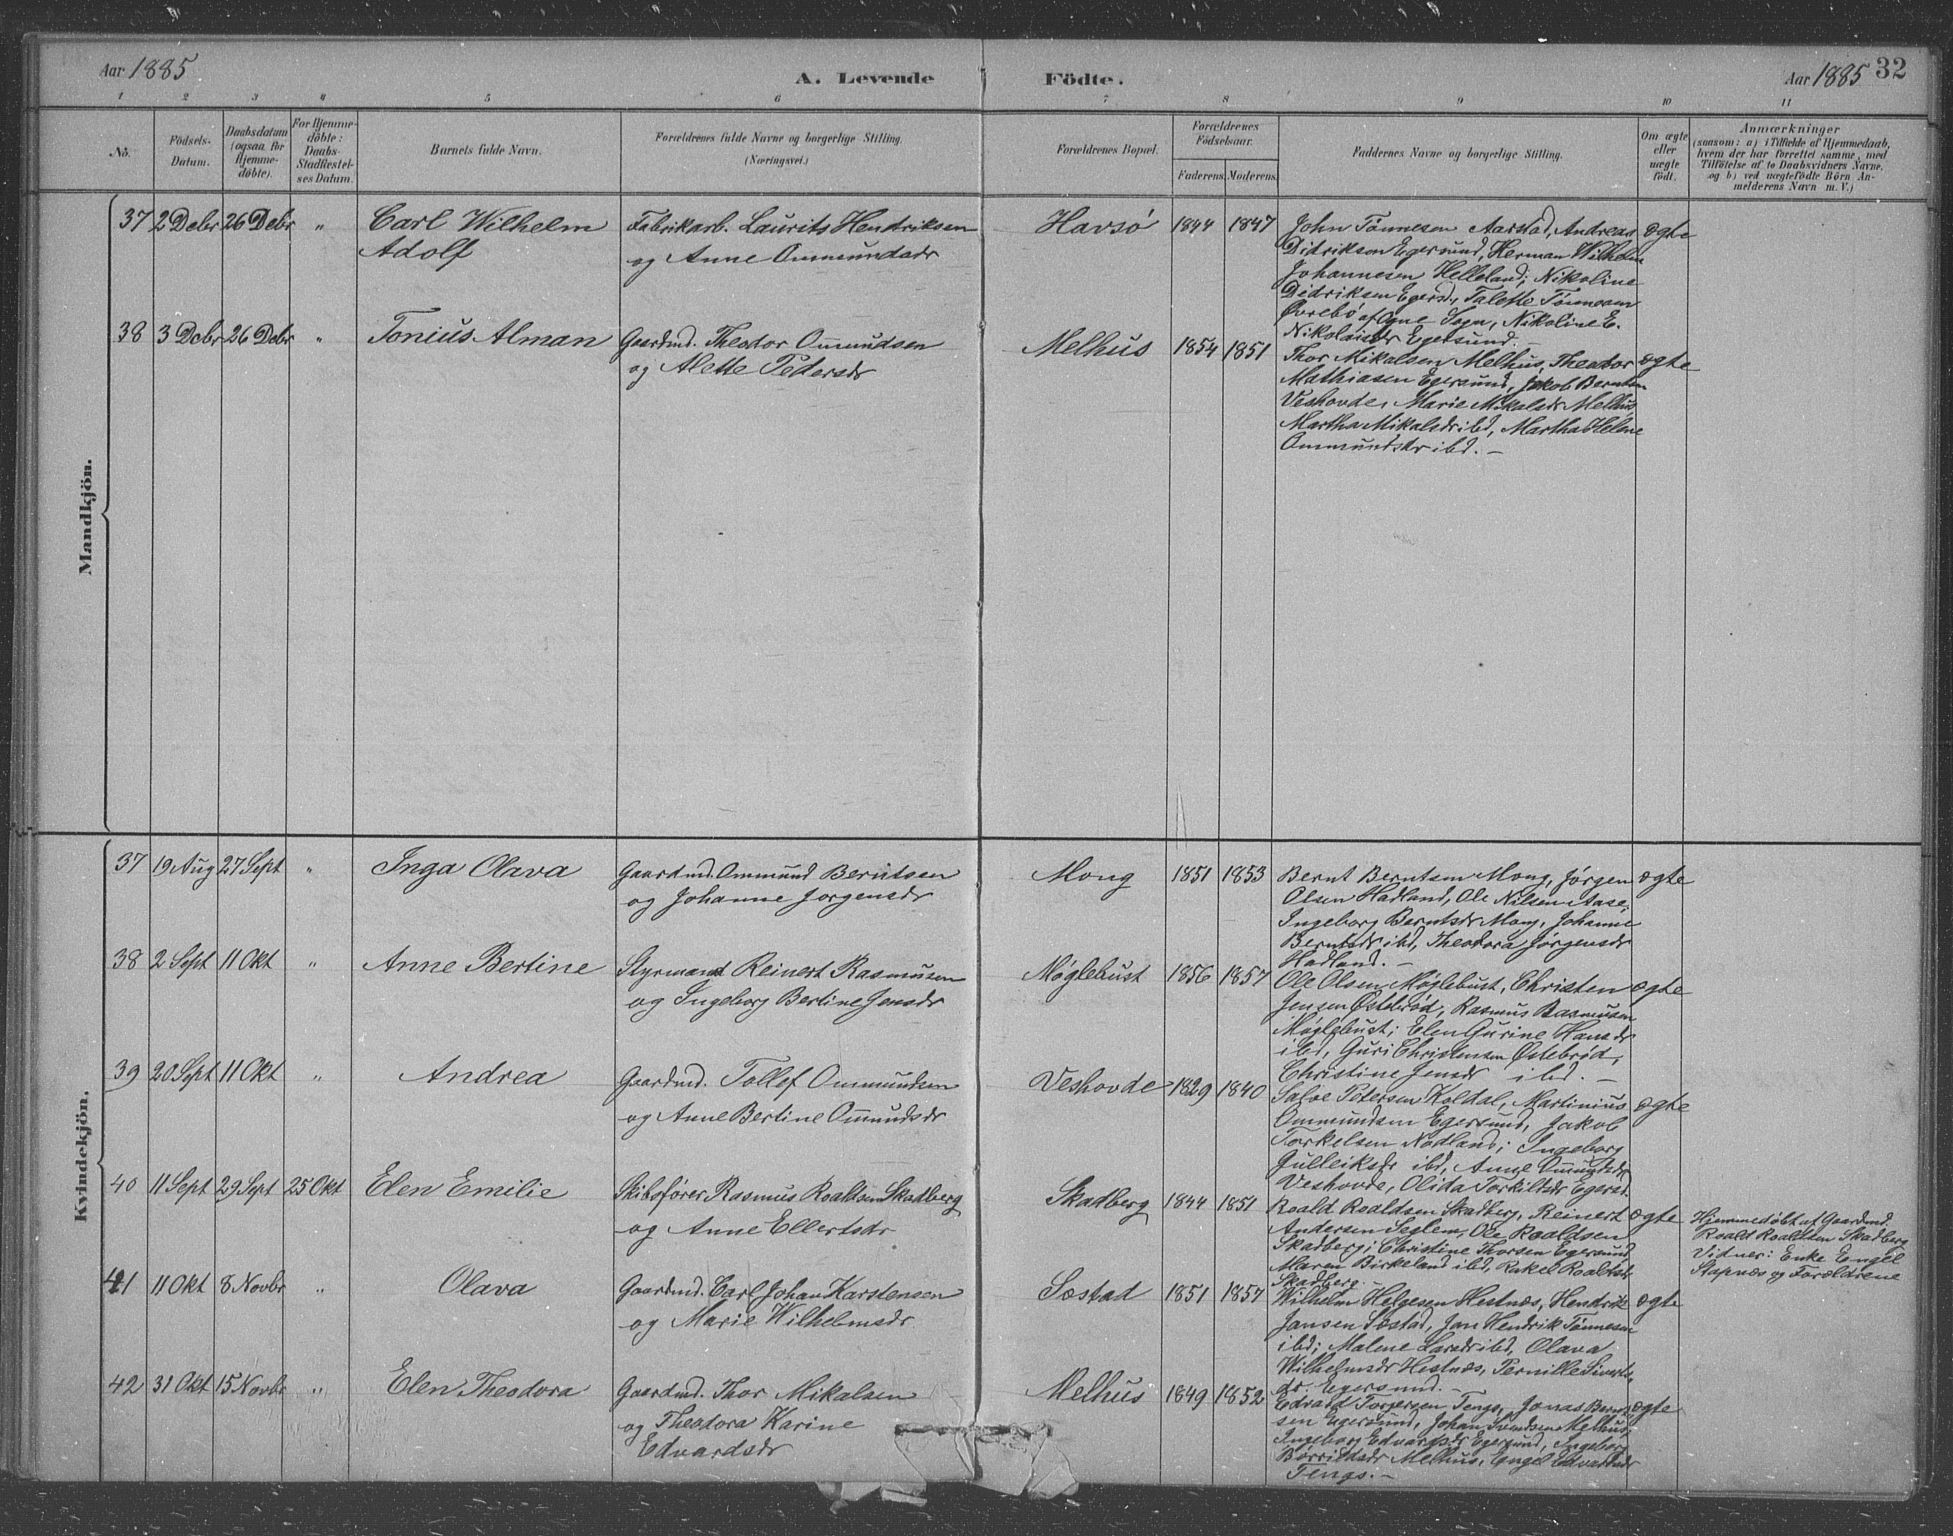 Aar 1885 A. Levende Födte. Aar 1885 32
1 2 3 4 5 6 7 8 9 10 11
No. Födsels-Datum. Daabsdatum (ogsaa for Hjemme-døbte). For Hjemme-døbte: Daabs-Stadfæstel-ses Datum. Barnets fulde Navn. Forældrenes fulde Navne og borgerlige Stilling. (Næringsvei.) Forældrenes Bopæl. Forældrenes Födselsaar. Faderens. Moderens. Faddernes Navne og borgerlige Stilling. Om ægte eller uægte født. Anmærkninger (saasom: a) i Tilfælde af Hjemmedaab, hvem der har forrettet samme, med Tilføielse af to Daabsvidners Navne, og b) ved uægtefødte Börn An-melderens Navn m. V.)
Mandkjön.
37 2 Debr 26 Debr " Carl Wilhelm Adolf
Fabrikarb. Laurits Hendriksen
og Anne Ommundsdr
Havsö 1844 1847
John Tönnesen Aarstad, Andreas
Didriksen Egersund, Herman Wilhelm
Johannesen Helleland; Nikoline
Didriksen Egersd, Talette Tönnesen
Örebö af Ogne Sogn, Nikoline E.
Nikolaisdr Egersund.
ægte
38 3 Debr 26 Debr " Tonius Alman
Gaardmd. Theodor Ommundsen
og Alette Pedersdr
Melhus 1854 1851
Thor Mikalsen Melhus, Theodor
Mathiasen Egersund, Jakob Berntsen
Veshovde, Marie Mikalsdr Melhus,
Martha Mikalsdr ibd, Martha Helene
Ommundsdr ibd. –
ægte
Kvindekjön.
37 19 Aug 27 Sept " Inga Olava
Gaardmd. Ommund Berntsen
og Johanne Jørgensdr
Mong 1851 1853
Bernt Berntsen Mong, Jørgen
Olsen Hadland, Ole Nilsen Aase;
Ingeborg Berntsdr Mong, Johanne
Berntsdr ibd, Theodora Jørgensdr
Hadland. –
ægte
38 2 Sept 11 Okt " Anne Bertine
Styrmand Reinert Rasmusen
og Ingeborg Bertine Jensdr
Møglebust 1856 1857
Ole Olsen Møglebust, Christen
Jensen Østebrød, Rasmus Rasmusen
Møglebust; Elen Gurine Hansdr
ibd, Guri Christensen Østebrød,
Christine Jensdr ibd. –
ægte
39 20 Sept 11 Okt " Andrea
Gaardmd. Tollef Ommundsen
og Anne Bertine Ommundsdr
Veshovde 1829 1840
Salve Petersen Koldal, Martinius
Ommundsen Egersund, Jakob
Torkelsen Nodland; Ingeborg
Gulleiksdr ibd, Anne Ommundsdr
Veshovde, Olida Torkildsdr Egersd.
ægte
40 11 Sept 29 Sept 25 Okt Elen Emilie
Skibsfører Rasmus Roaldsen Skadberg
og Anne Ellertsdr
Skadberg 1844 1851
Roald Roaldsen Skadberg, Reinert
Andersen Seglem, Ole Roaldsen
Skadberg; Christine Thorsen Egersund,
Maren Birkeland ibd, Rakel Roaldsdr
Skadberg. –
ægte
Hjemmedøbt af Gaardmd.
Roald Roaldsen Skadberg
Vidner: Enke Engel
Stapnæs og Forældrene
41 11 Okt 8 Novbr " Olava
Gaardmd. Carl Johan Karstensen
og Marie Wilhelmsdr
Sæstad 1851 1857
Wilhelm Helgesen Hestnæs, Hendrik
Jansen Sæstad, Jan Hendrik Tönnesen
ibd; Malene Larsdr ibd, Olava
Wilhelmsdr Hestnæs, Pernille Siverts-
dr. Egersund. –
ægte
42 31 Okt 15 Novbr " Elen Theodora
Gaardmd. Thor Mikalsen
og Theodora Karine
Edvardsdr
Melhus 1849 1852
Edvard Torgersen Tengs, Jonas Bernt-
sen Egersund, Johan Svendsen Melhus,
Ingeborg Edvardsdr Egersund, Ingeborg
Børrildsdr Melhus, Engel Edvardsdr
Tengs. –
ægte